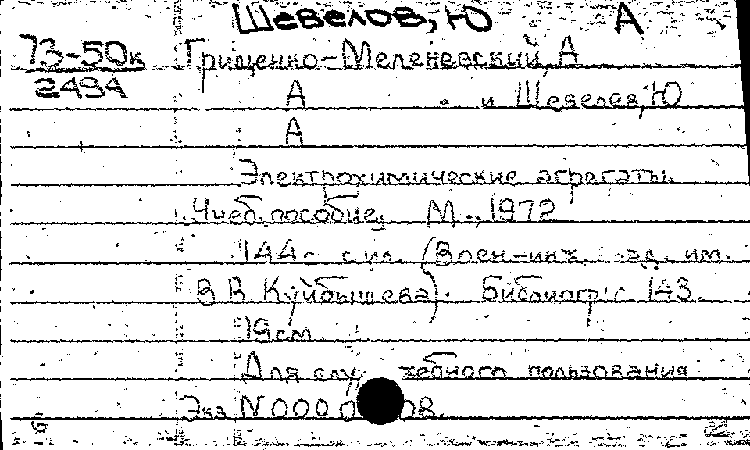 Шевелов, Ю А
73-50к Грищенко-Меленевский, А
2494 А и Шевелов, Ю
А
Электрохимические агрегаты.
Учеб. пособие, М., 1972
144 с ил. (Воен-инж. ак. им.
В В Куйбышева). Библиогр: с 143.
19см
Для служебного пользования
Экз N 000 08.